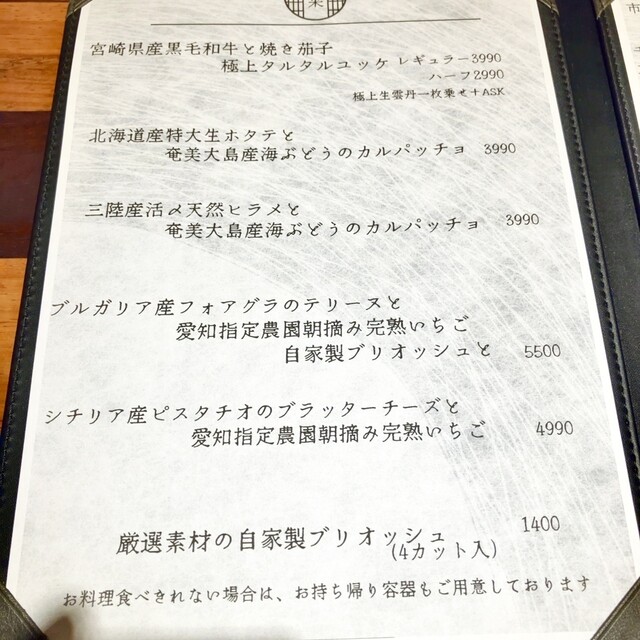 宮崎県産黒毛和牛と焼き茄子
極上タルタルユッケ レギュラー3990
ハーフ2990
極上生雲丹一枚乗せ+ASK
北海道産特大生ホタテと
奄美大島産海ぶどうのカルパッチョ 3990
三陸産活〆天然ヒラメと
奄美大島産海ぶどうのカルパッチョ 3990
ブルガリア産フォアグラのテリーヌと
愛知指定農園朝摘み完熟いちご
自家製ブリオッシュと 5500
シチリア産ピスタチオのブラッターチーズと
愛知指定農園朝摘み完熟いちご 4990
厳選素材の自家製ブリオッシュ 1400
(4カット入)
お料理食べきれない場合は、お持ち帰り容器もご用意しております
市